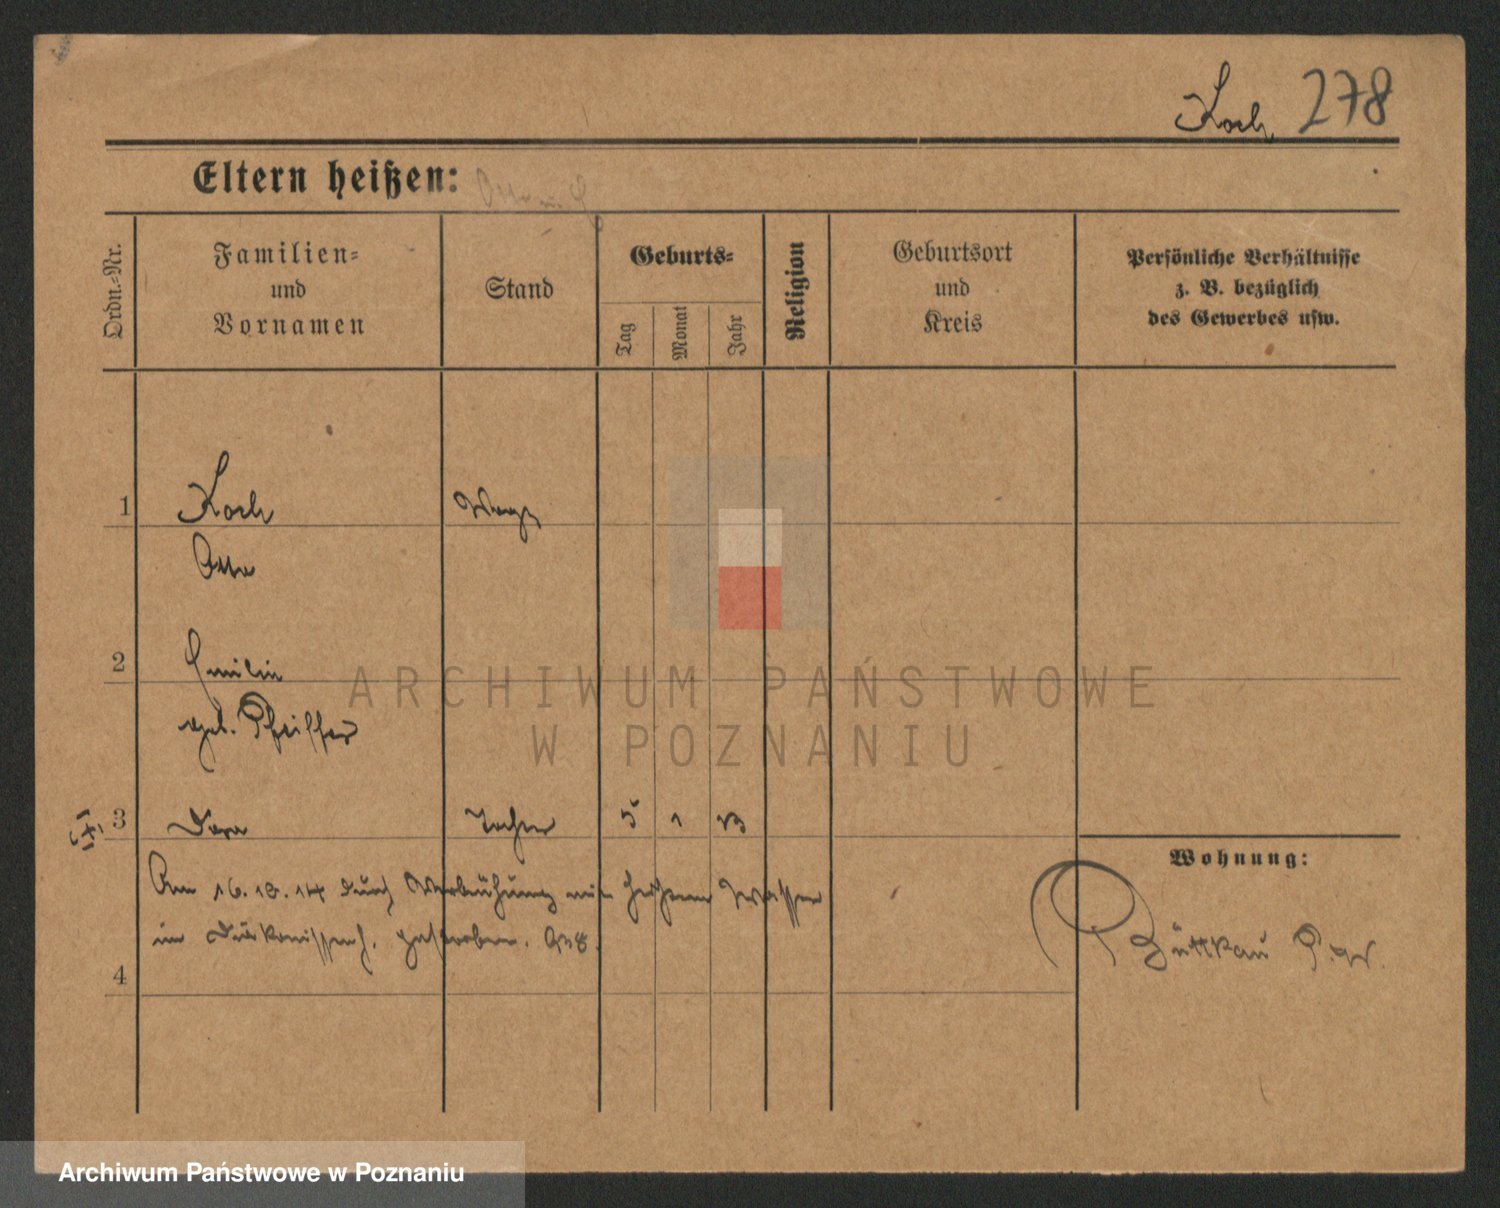 Koch 278
Eltern heißen:
Ordn.-Nr.
Familien-
und
Vornamen
Stand
Geburts-
Tag
Monat
Jahr
Religion
Geburtsort
und
Kreis
Persönliche Verhältnisse
z. B. bezüglich
des Gewerbes usw.
1 Koch
Otto
2 Emilie
geb. Pfeiffer
3 Dora Tochter 5 1 13
Am 16.10.14 durch Verbrühung mit heißem Wasser
im Diakonissenh. gestorben.
4
Wohnung:
ARCHIWUM PAŃSTWOWE
W POZNANIU
Archiwum Państwowe w Poznaniu